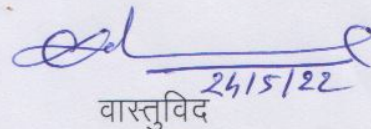 24/5/22
वास्तुविद